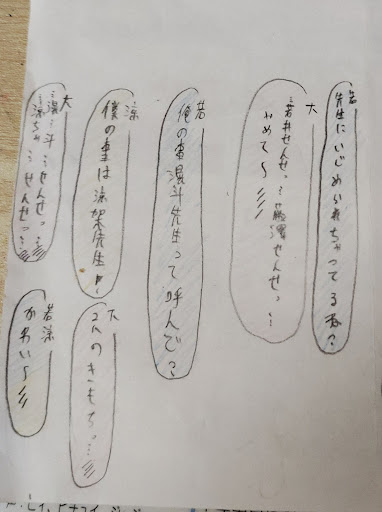 若
先生にいじめられちゃってるね?
大
若井せんせっ…藤澤せんせっ…
やめて〜///
若
俺の事滉斗先生って呼んで?
涼
僕の事は涼架先生!
大
滉斗…せんせっ…
涼ちゃ…せんせっ…///
大
2人のきもちっ…///
若涼
かわい〜///